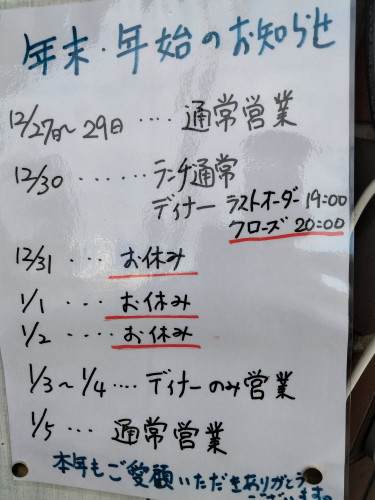 年末・年始のお知らせ
12/27日〜29日 ‥‥ 通常営業
12/30 ‥‥‥ ランチ通常
ディナー ラストオーダー 19:00
クローズ 20:00
12/31 ‥‥ お休み
1/1 ‥‥ お休み
1/2 ‥‥ お休み
1/3〜1/4‥‥ ディナーのみ営業
1/5 ‥‥ 通常営業
本年もご愛顧いただきありがとう
ございます。